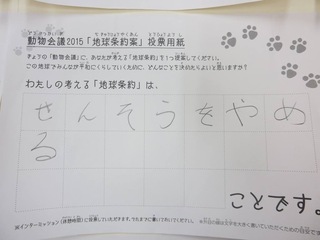 動物会議2015「地球条約案」投票用紙
きょうの「動物会議」に、あなたが考える「地球条約」を1つ提案してください。
この地球でみんなが平和にくらしていくために、どんなことを決めたらよいと思いますか?
わたしの考える「地球条約」は、
せんそうをやめ
る
ことです。
※インターミッション(休憩時間)に投票していただきます。